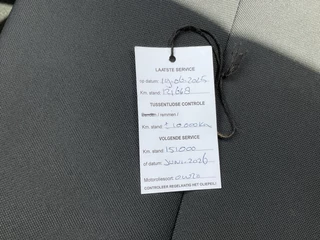 LAATSTE SERVICE
op datum:
Km. stand:
TUSSENTIJDSE CONTROLE
Banden / remmen /
Km. stand: ± 10.000 Km
VOLGENDE SERVICE
Km. stand: 151000
of datum: JUNI-2026
Motoroliesoort: 0W20
CONTROLEER REGELMATIG HET OLIEPEIL!